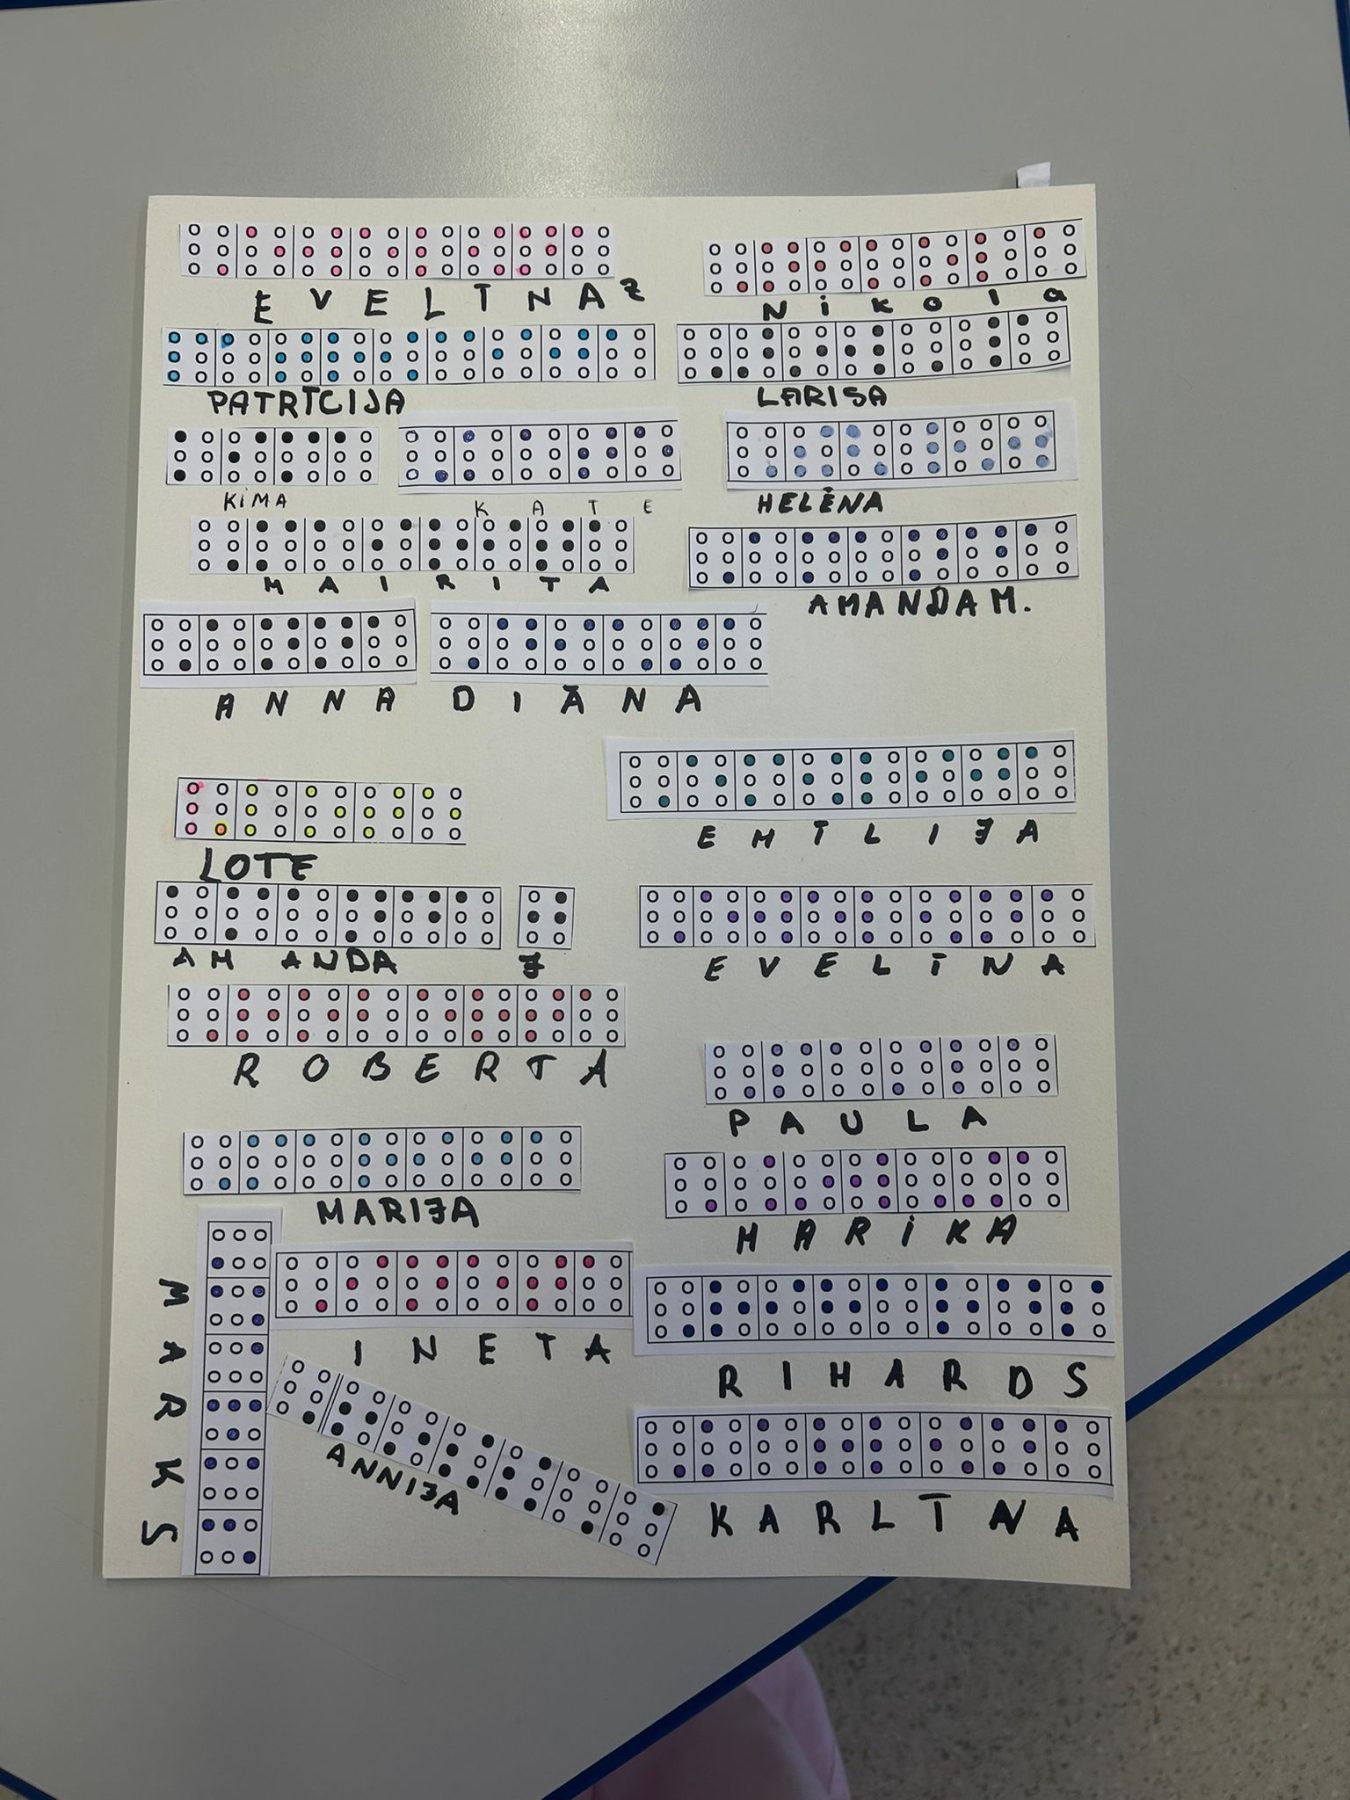 EVELĪNA Z
Nikola
PATRĪCIJA
LARISA
KIMA
KATE
HELĒNA
MAIRITA
AMANDA M.
ANNA
DIĀNA
EMĪLIJA
LOTE
AMANDA Z
EVELĪNA
ROBERTA
PAULA
MARIJA
MARIKA
MARKS
INETA
RIHARDS
ANNIJA
KARLĪNA